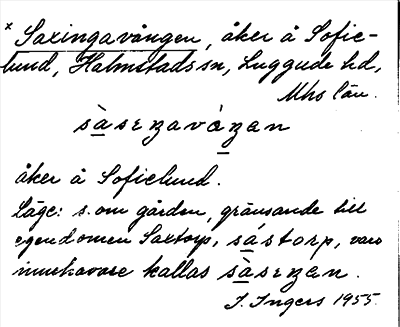 × Saxingavången, åker å Sofie-
lund, Halmstads sn, Luggude hd,
Mhs län.
sàsɛŋavàŋan
åker å Sofielund.
Läge: s. om gården, gränsande till
egendomen Saxtorp, sástorp, vars
innehavare kallas sàsɛŋan.
I. Ingers 1955.